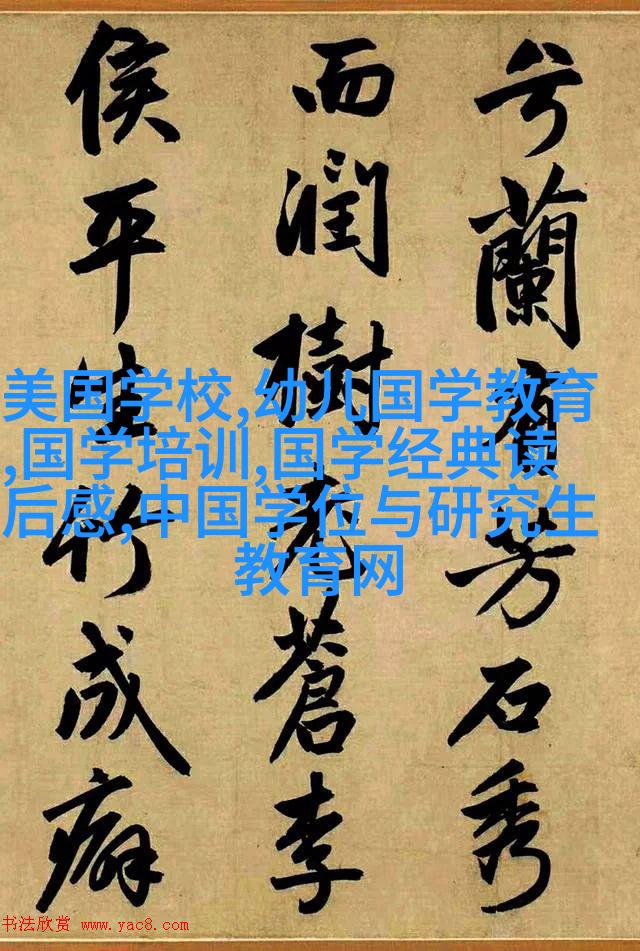 兮蘭有芳石秀
而潤樹老蒼李
侯平生竹成癖
美国学校,幼儿国学教育
,国学培训,国学经典读
后感,中国学位与研究生
教育网
书法欣赏 www.yac8.com